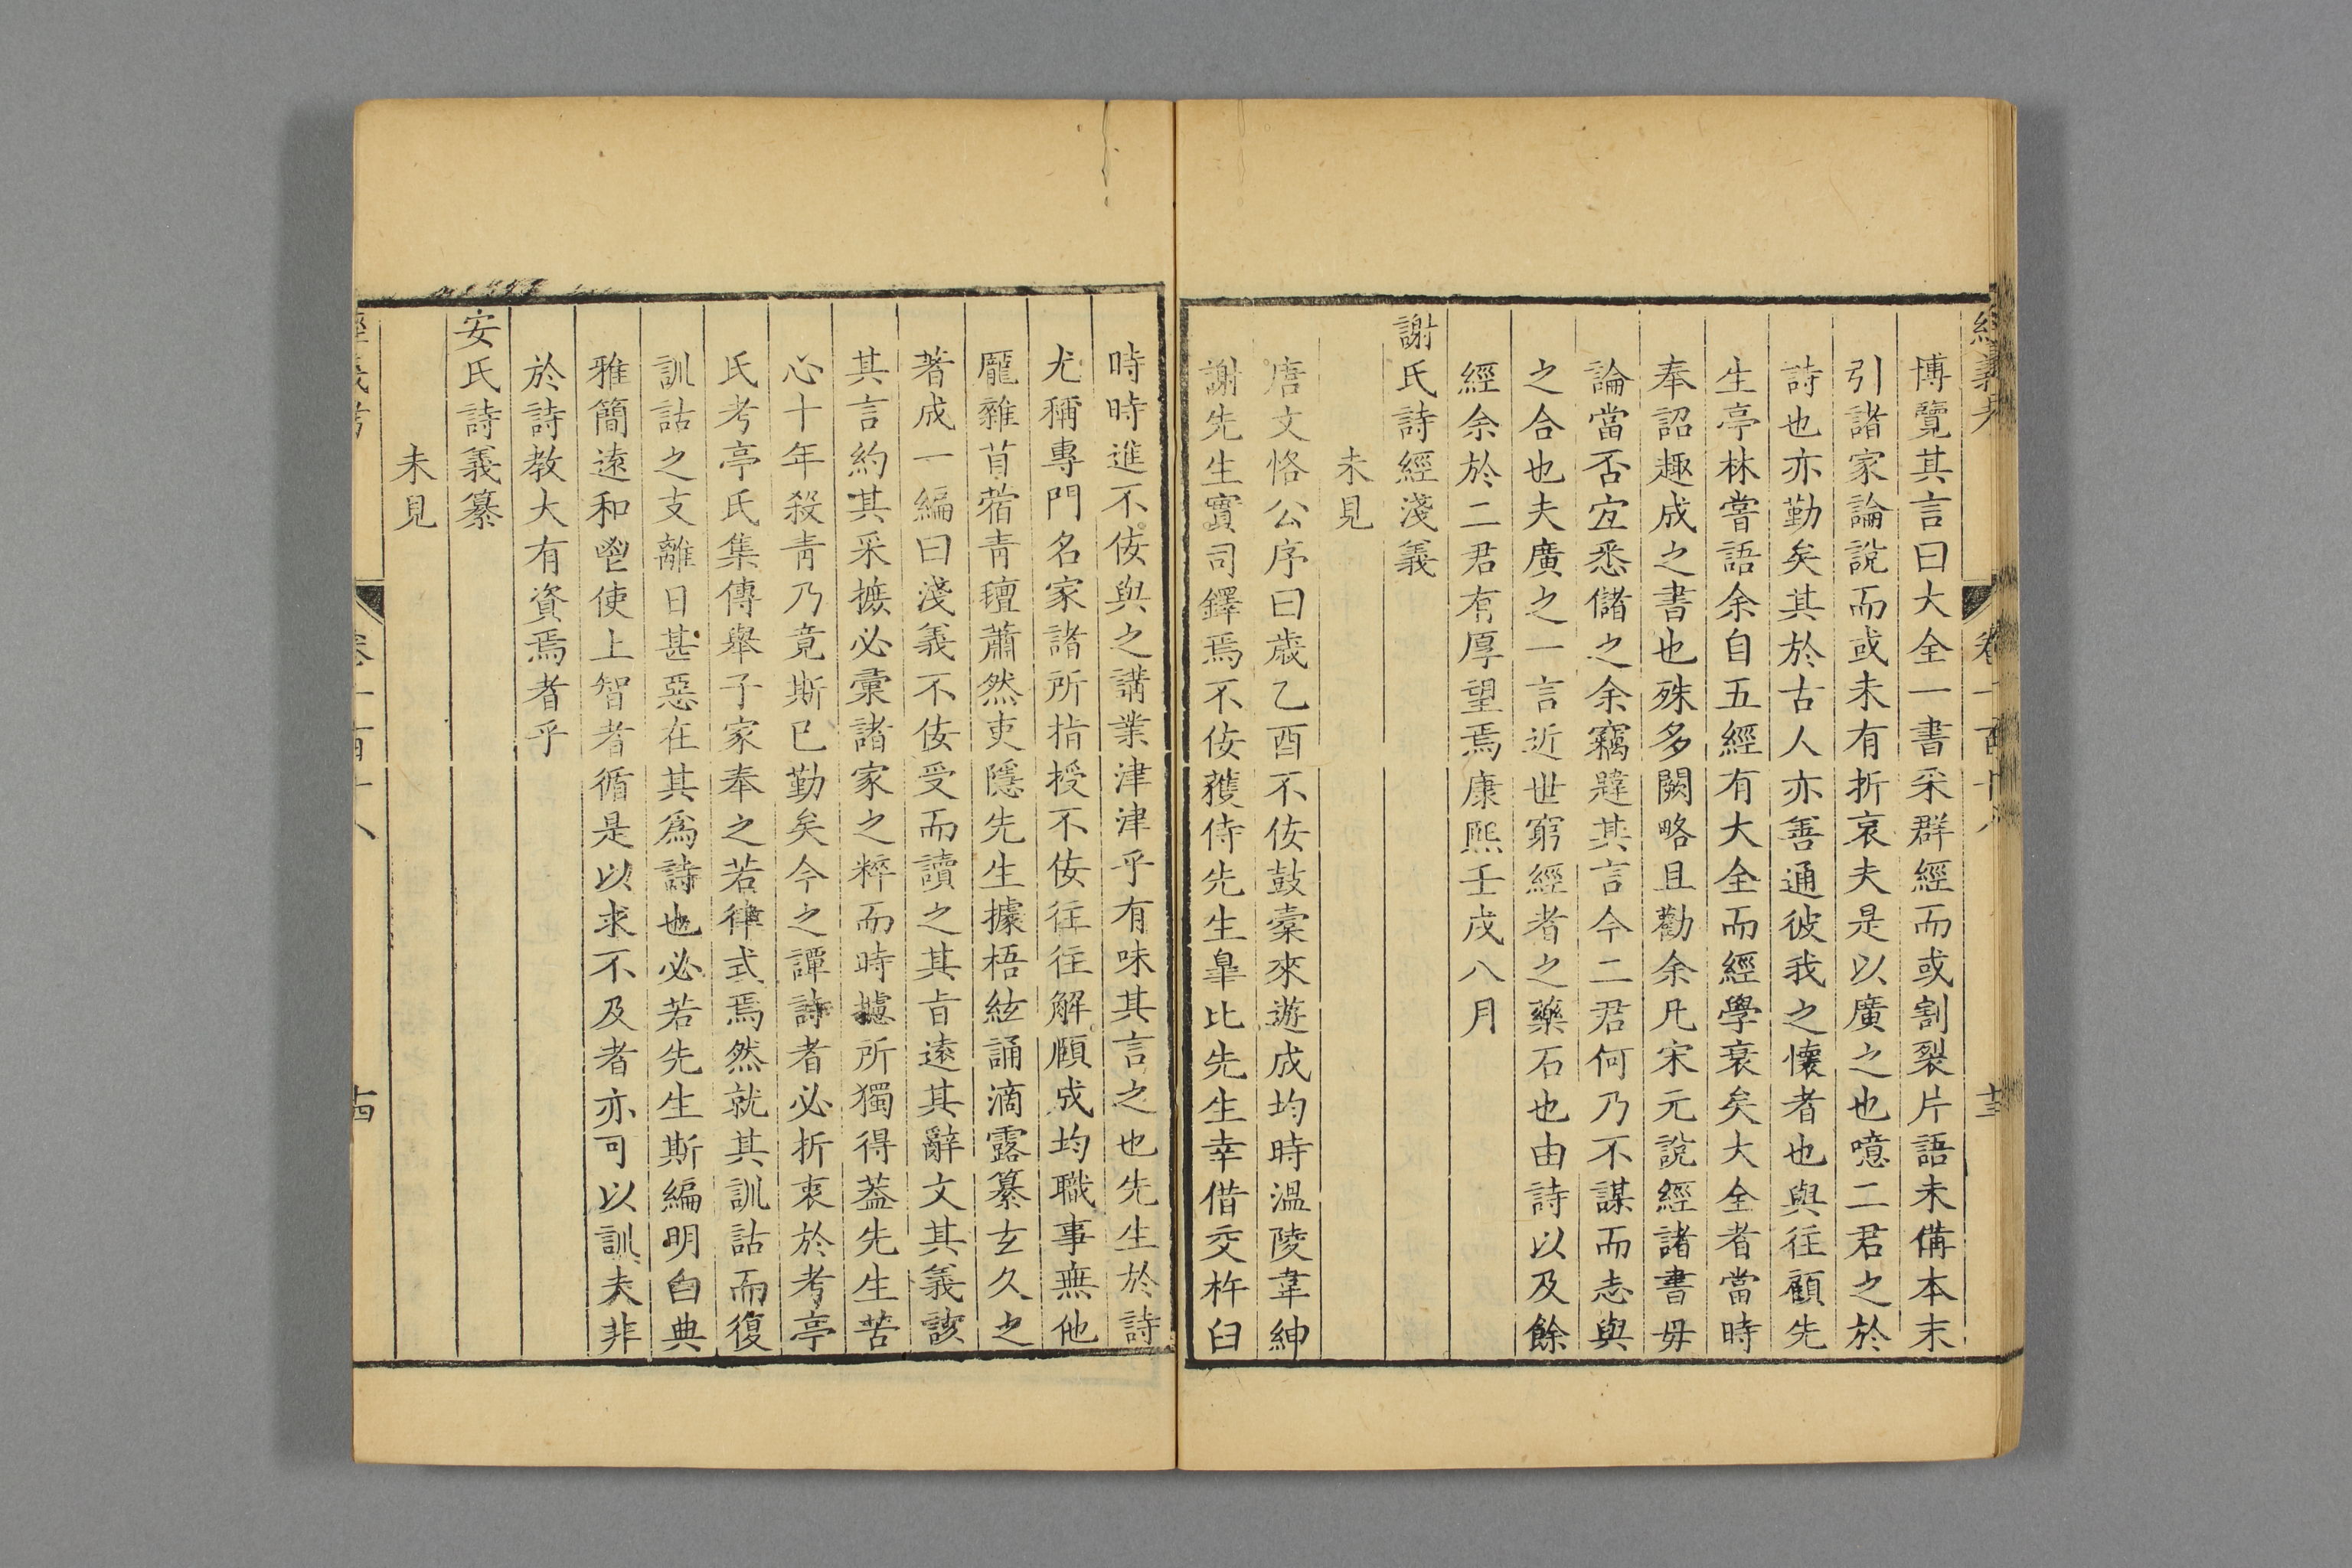 經義考 卷一百十八 十三
博覽其言曰大全一書采群經而或割裂片語未備本末
引諸家論說而或未有折衷夫是以廣之也噫二君之於
詩也亦勤矣其於古人亦善通彼我之懷者也與往顧先
生亭林嘗語余自五經有大全而經學衰矣大全者當時
奉詔趣成之書也殊多闕略且勸余凡宋元說經諸書毋
論當否宜悉儲之余竊韙其言今二君何乃不謀而志與
之合也夫廣之一言近世窮經者之藥石也由詩以及餘
經余於二君有厚望焉康熙壬戌八月
謝氏詩經淺義
未見
唐文恪公序曰歲乙酉不佞鼓橐來遊成均時溫陵韋紳
謝先生實司鐸焉不佞獲侍先生皐比先生幸借交杵臼
時時進不佞與之講業津津乎有味其言之也先生於詩
尤稱專門名家諸所指授不佞往往解頤成均職事無他
龎雜苜蓿青氊蕭然吏隱先生據梧絃誦滴露纂玄久之
著成一編曰淺義不佞受而讀之其旨遠其辭文其義該
其言約其采摭必彙諸家之粹而時攄所獨得葢先生苦
心十年殺青乃竟斯已勤矣今之譚詩者必折衷於考亭
氏考亭氏集傳舉子家奉之若律式焉然就其訓詁而復
訓詁之支離日甚惡在其爲詩也必若先生斯編明白典
雅簡遠和鬯使上智者循是以求不及者亦可以訓夫非
於詩教大有資焉者乎
安氏詩義纂
未見
經義考 卷一百十八 十四